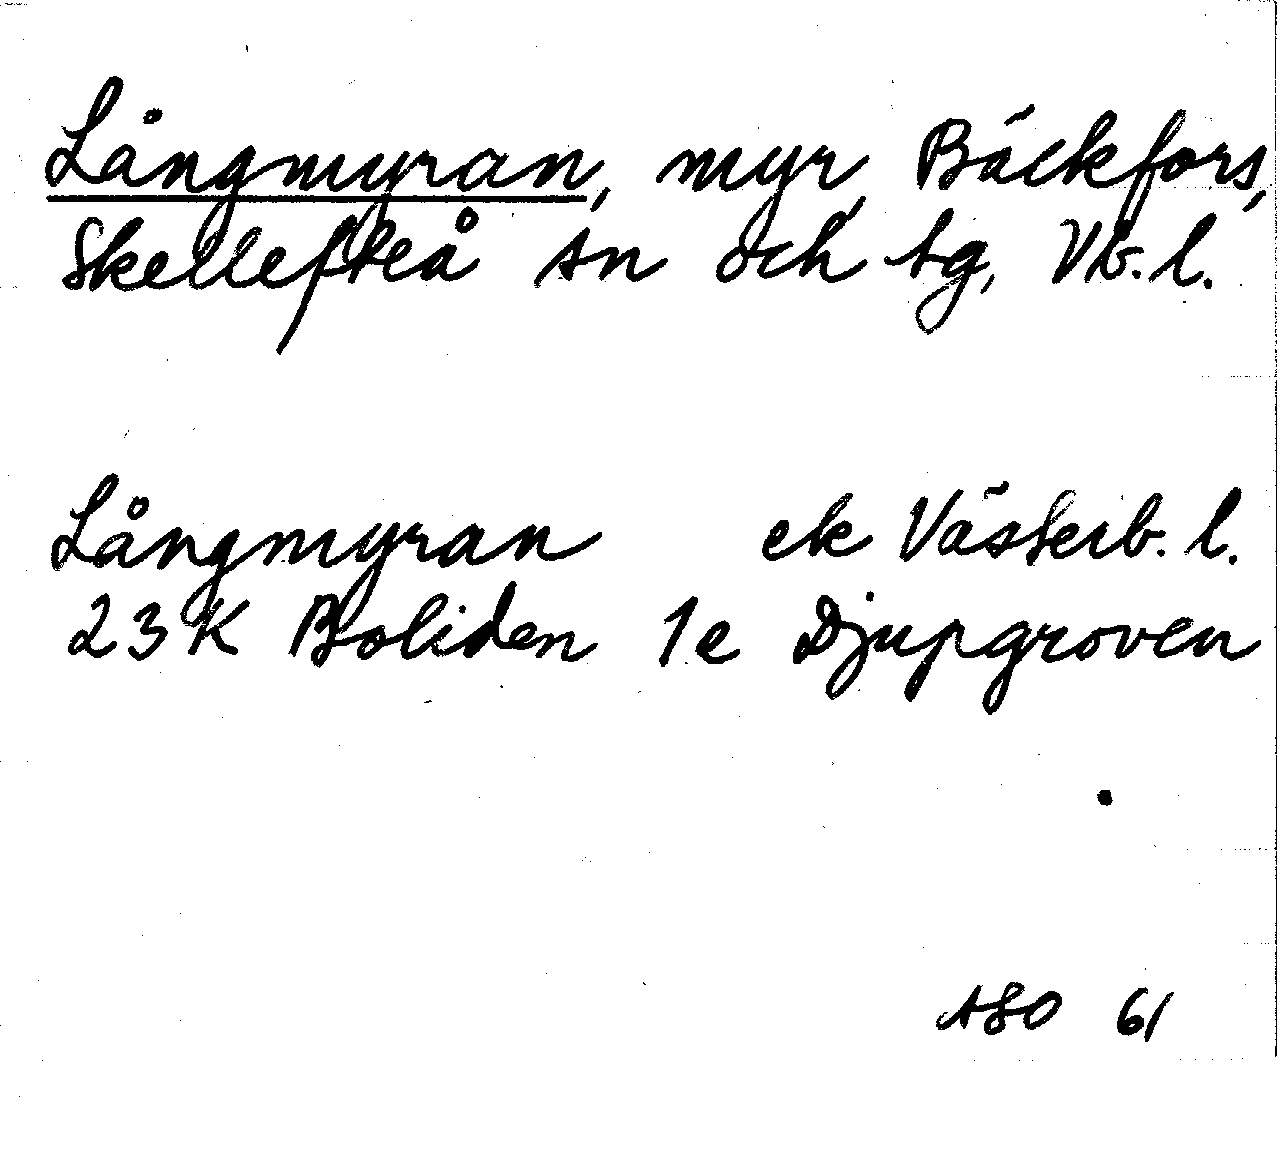 Långmyran, myr, Bäckfors,
Skellefteå sn och tg, Vb. l.
Långmyran ek Västerb. l.
23 K Boliden 1e Djupgroven
ASO 61